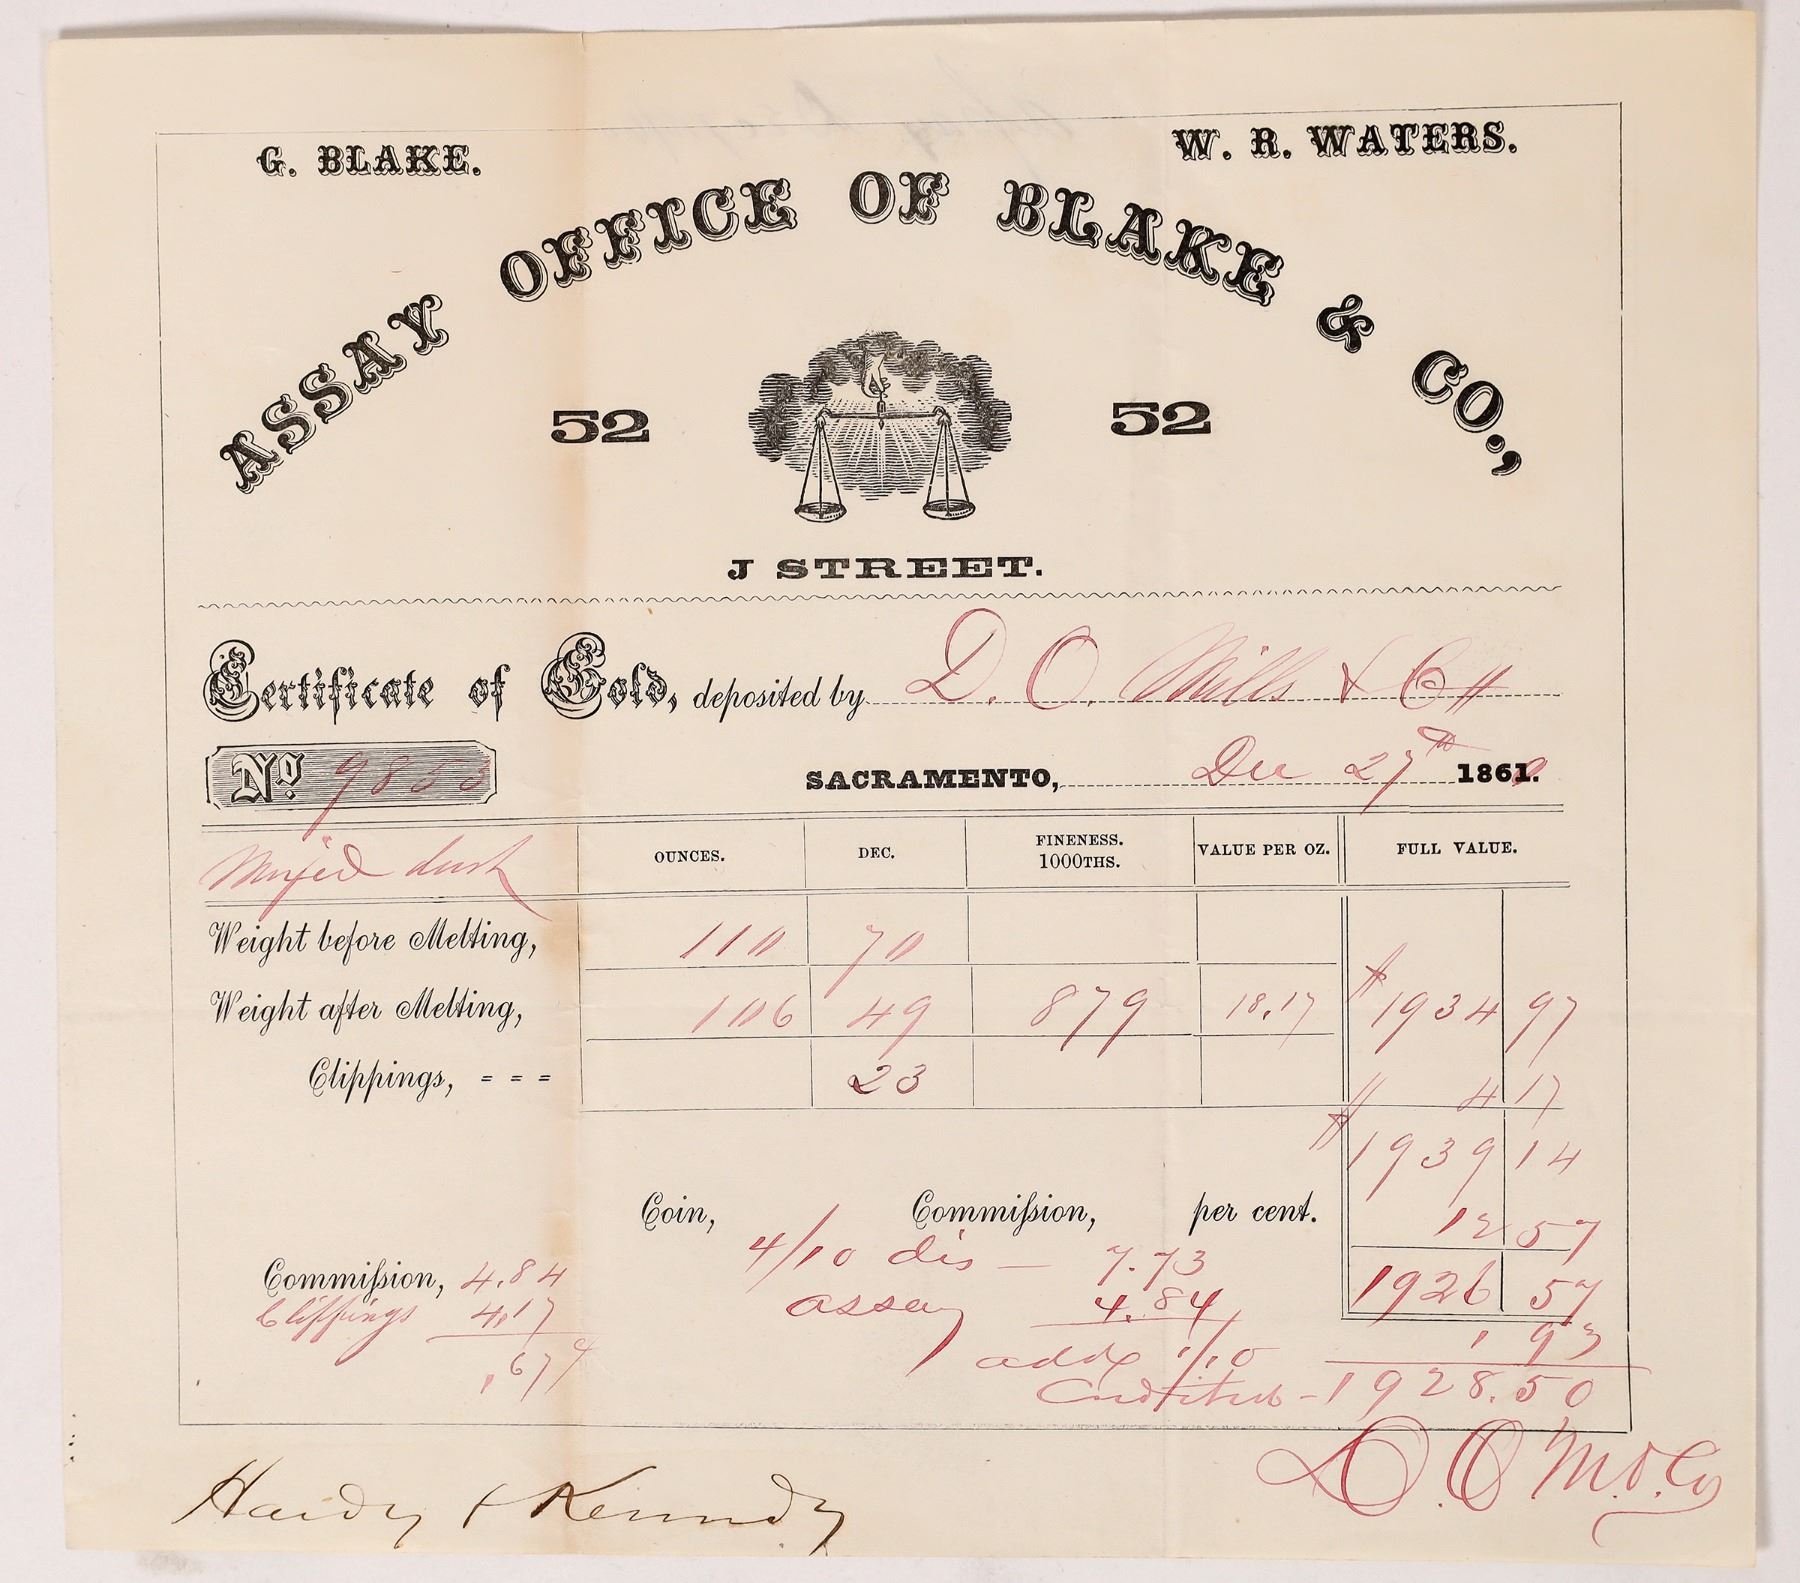 G. BLAKE. W. R. WATERS.
ASSAY OFFICE OF BLAKE & CO.,
52 52
J STREET.
Certificate of Gold, deposited by D. O. Mills & Co
No. 9853
SACRAMENTO, Dec 27th 1860.
dust OUNCES. DEC. FINENESS. 1000THS. VALUE PER OZ. FULL VALUE.
Weight before Melting, 110 70
Weight after Melting, 106 49 879 18.17 $ 1934 97
Clippings, = = = 23 4 17
$ 1939 14
Coin, Commission, per cent. 12 57
4/10 dis — 7.73
Commission, 4.84 1926 57
Clippings 4.17 assay 4.84
.67 add 1/10 1 93
1928.50
Hardy & Kennedy D. O. M. & Co